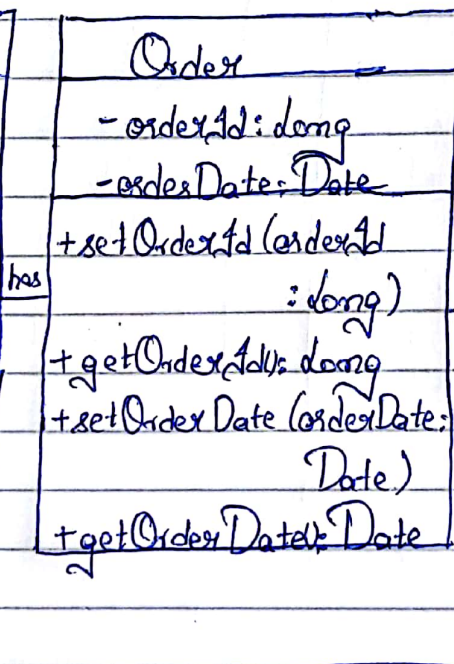 Order
- orderId: long
- orderDate: Date
+ setOrderId (orderId
has
: long)
+ getOrderId(): long
+ setOrderDate (orderDate:
Date)
+ getOrderDate(): Date